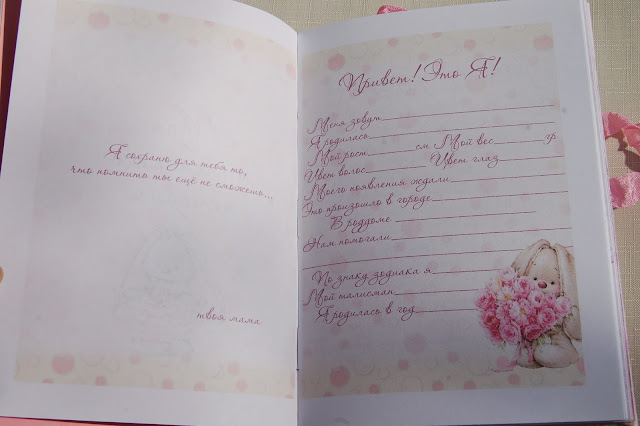 Я сохраню для тебя то,
что помнить ты ещё не сможешь...
твоя мама
Привет! Это Я!
Меня зовут
Я родилась
Мой рост см Мой вес гр
Цвет волос Цвет глаз
Моего появления ждали
Это произошло в городе
В роддоме
Нам помогали
По знаку зодиака я
Мой талисман
Я родилась в год